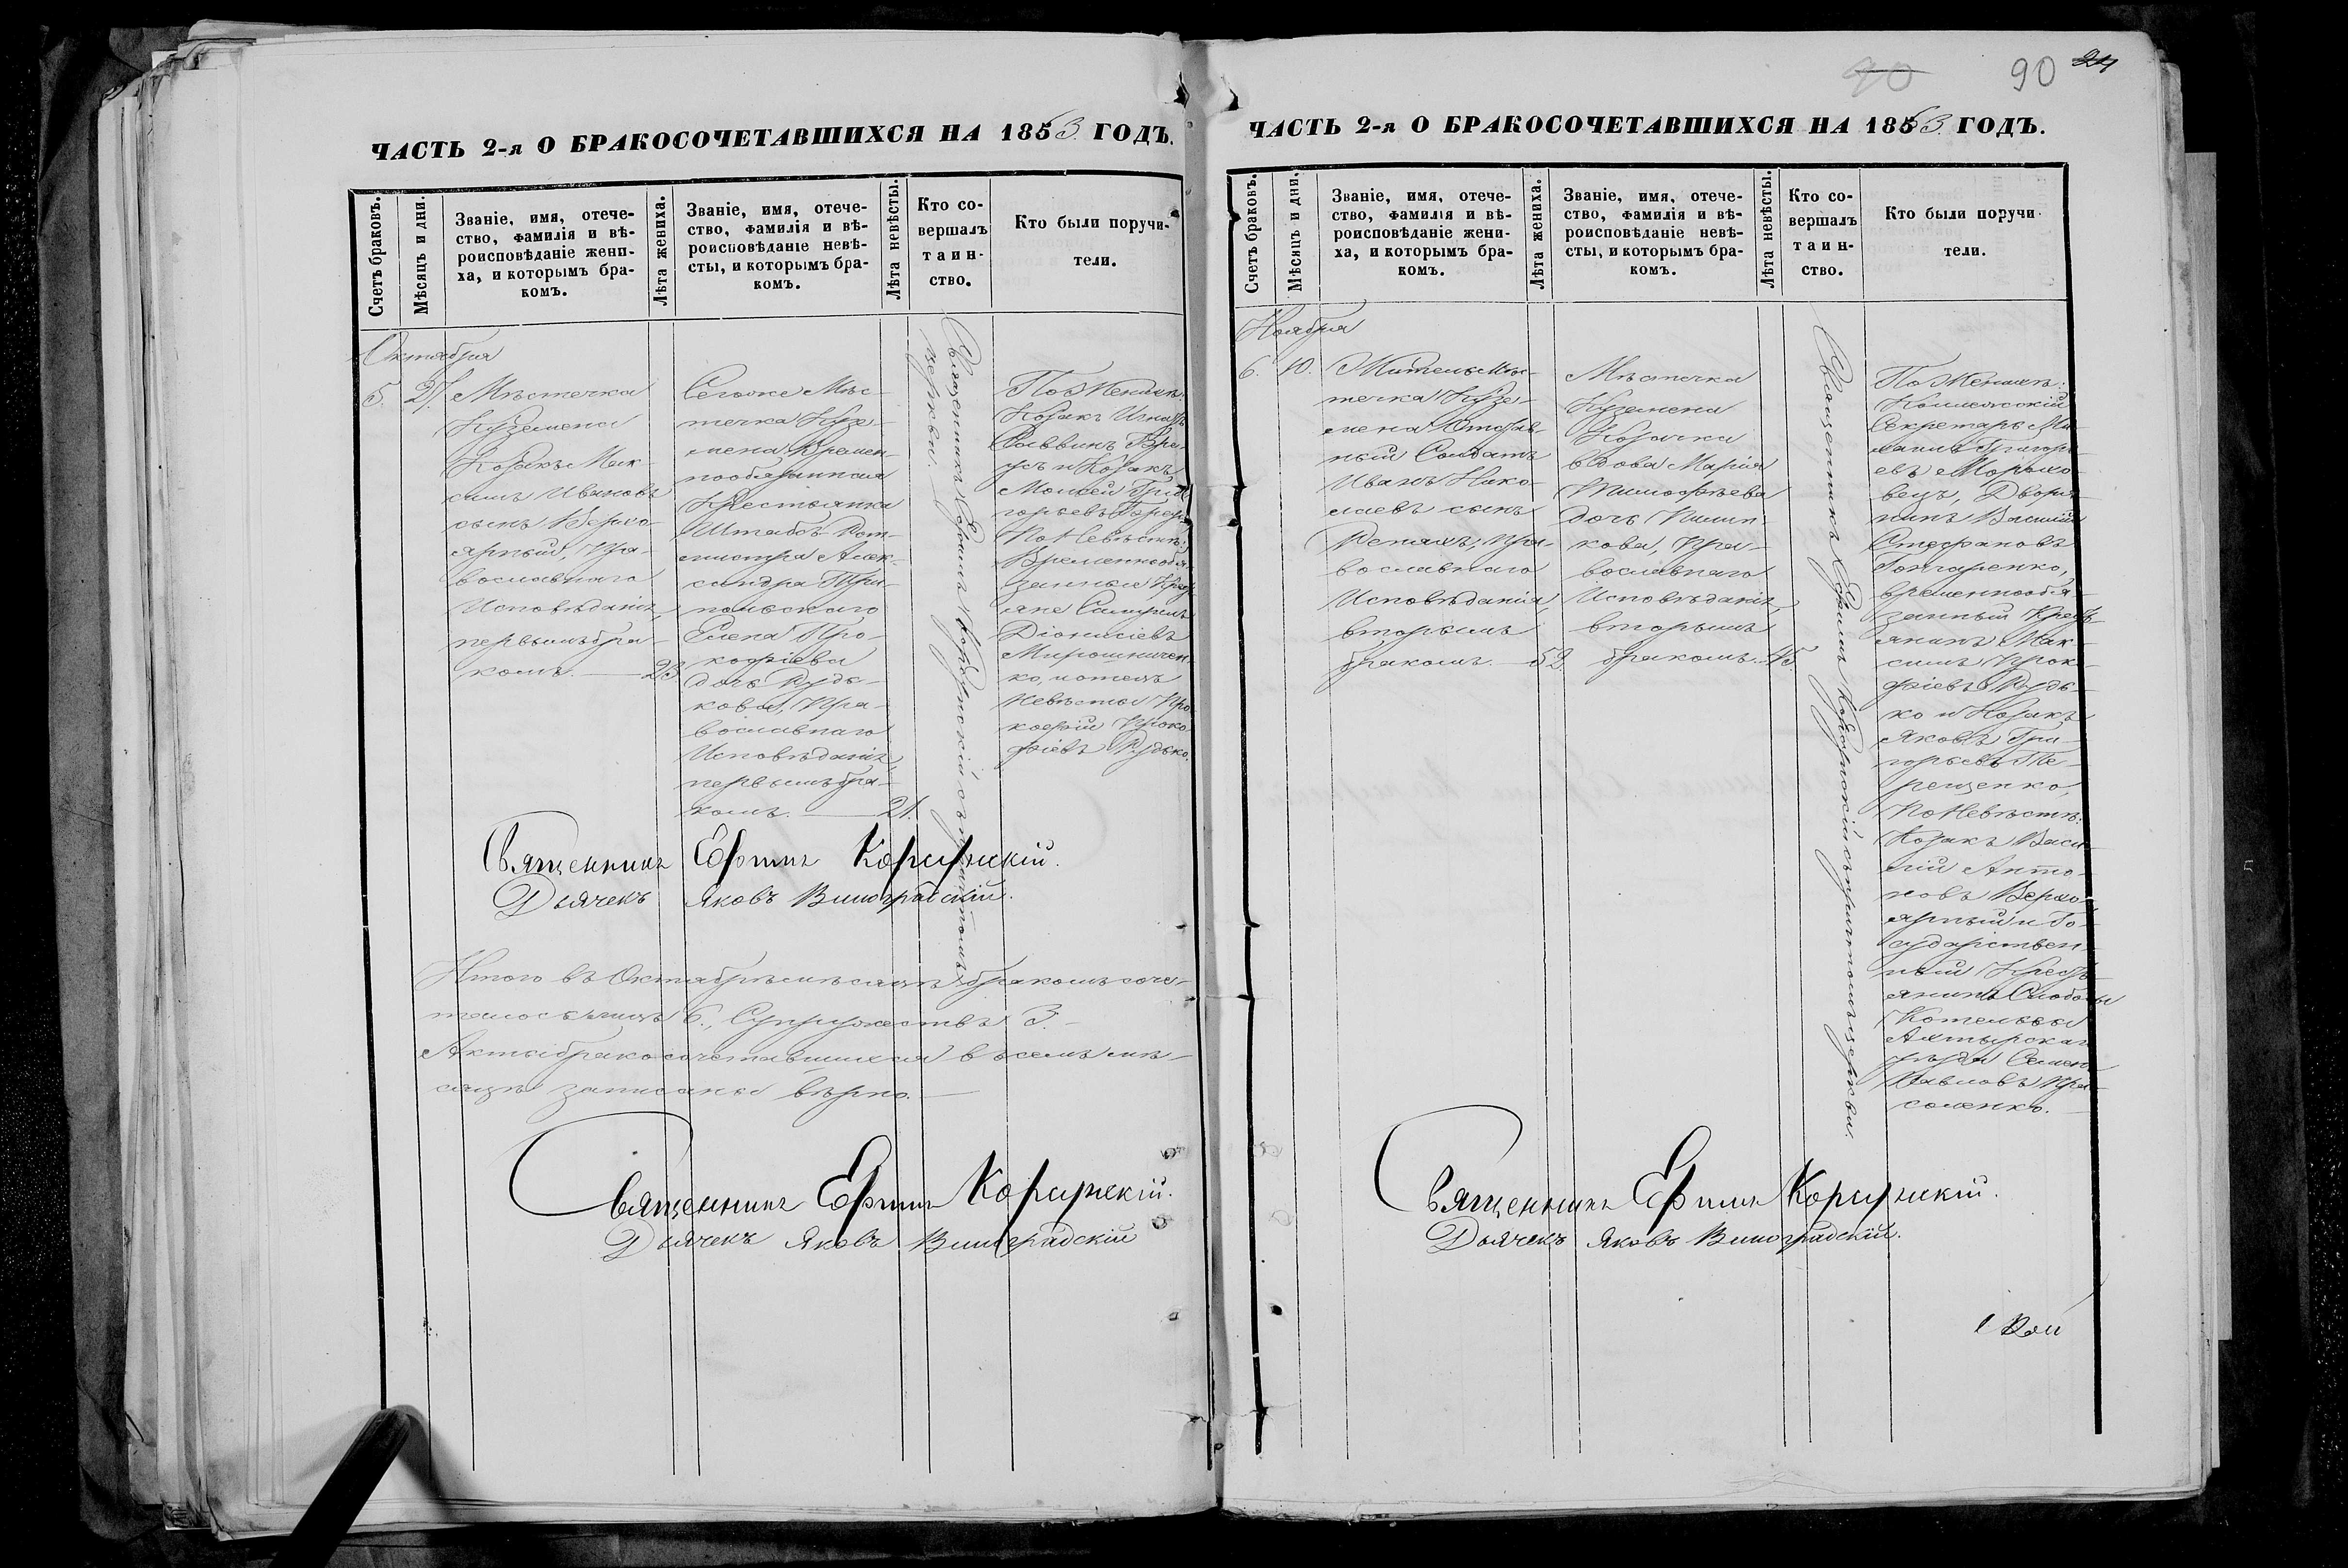 ЧАСТЬ 2-я О БРАКОСОЧЕТАВШИХСЯ НА 1863 ГОДЪ.
Счетъ браковъ.
Мѣсяцъ и дни.
Званіе, имя, отече-
ство, фамилія и вѣ-
роисповѣданіе жени-
ха, и которымъ бра-
комъ.
Лѣта жениха.
Званіе, имя, отече-
ство, фамилія и вѣ-
роисповѣданіе невѣ-
сты, и которымъ бра-
комъ.
Лѣта невѣсты.
Кто со-
вершалъ
таин-
ство.
Кто были поручи-
тели.
Октября
5. 27.
Мѣстечка
Куземена
Козакъ Мак-
симъ Ивановъ
сынъ Верхо-
ярный, Пра-
вославнаго
Исповѣданія,
первымъ бра-
комъ. — 23
Сегоже Мѣс-
течка Кузе-
мена Времен-
нообязанная
Крестьянка
Штабсъ Рот-
мистра Алек-
сандра
Елена Про-
кофіева
дочь Рудь-
кова, Пра-
вославнаго
Исповѣданія,
первымъ бра-
комъ. — 21.
Священникъ Ефимъ Корсунскій съ причтомъ
церкви.
По Женихѣ:
Козакъ Игнатъ
Саввинъ
и Козакъ
Моисей Гри-
горьевъ
По Невѣстѣ:
Временнообя-
занные Крест-
яне
Діонисіевъ
Мирошничен-
ко, и отецъ
Невѣсты Про-
кофій Проко-
фіевъ Рудько.
Священникъ Ефимъ Корсунскій.
Дьячекъ Яковъ Виноградскій.
Итого въ Октябрѣ мѣсяцѣ бракомъ соче-
талось лицъ 6., Супружествъ 3.
Акты бракосочетавшихся въ семъ мѣ-
сяцѣ записаны вѣрно. —
Священникъ Ефимъ Корсунскій.
Дьячекъ Яковъ Виноградскій
90 90 24
ЧАСТЬ 2-я О БРАКОСОЧЕТАВШИХСЯ НА 1863 ГОДЪ.
Счетъ браковъ.
Мѣсяцъ и дни.
Званіе, имя, отече-
ство, фамилія и вѣ-
роисповѣданіе жени-
ха, и которымъ бра-
комъ.
Лѣта жениха.
Званіе, имя, отече-
ство, фамилія и вѣ-
роисповѣданіе невѣ-
сты, и которымъ бра-
комъ.
Лѣта невѣсты.
Кто со-
вершалъ
таин-
ство.
Кто были поручи-
тели.
Ноября
6. 10.
Житель Мѣс-
течка Кузе-
мена Отстав-
ный Солдатъ
Иванъ Нико-
лаевъ сынъ
Репахъ, Пра-
вославнаго
Исповѣданія,
вторымъ
бракомъ. — 52
Мѣстечка
Куземена
Козачка
вдова Марія
Тимофѣева
дочь
кова, Пра-
вославнаго
Исповѣданія,
вторымъ
бракомъ. 45.
Священникъ Ефимъ Корсунскій съ причтомъ церкви.
По Женихѣ:
Коллежскій
Секретарь Ми-
хаилъ Григорь-
евъ Морохо-
вецъ, Дворя-
нинъ Василій
Стефановъ
Гончаренко,
временнообя-
занный Крест-
янинъ Мак-
симъ Прок-
офіевъ Рудь-
ко и Козакъ
Яковъ Гри-
горьевъ Те-
рещенко,
По Невѣстѣ:
Козакъ Васи-
лій Анто-
новъ Верхо-
ярный и Го-
сударствен-
ный Крест-
янинъ Слободы
Котельвы
Ахтырскаго
уѣзда Семенъ
Павловъ Пра-
соленко. —
Священникъ Ефимъ Корсунскій.
Дьячекъ Яковъ Виноградскій.